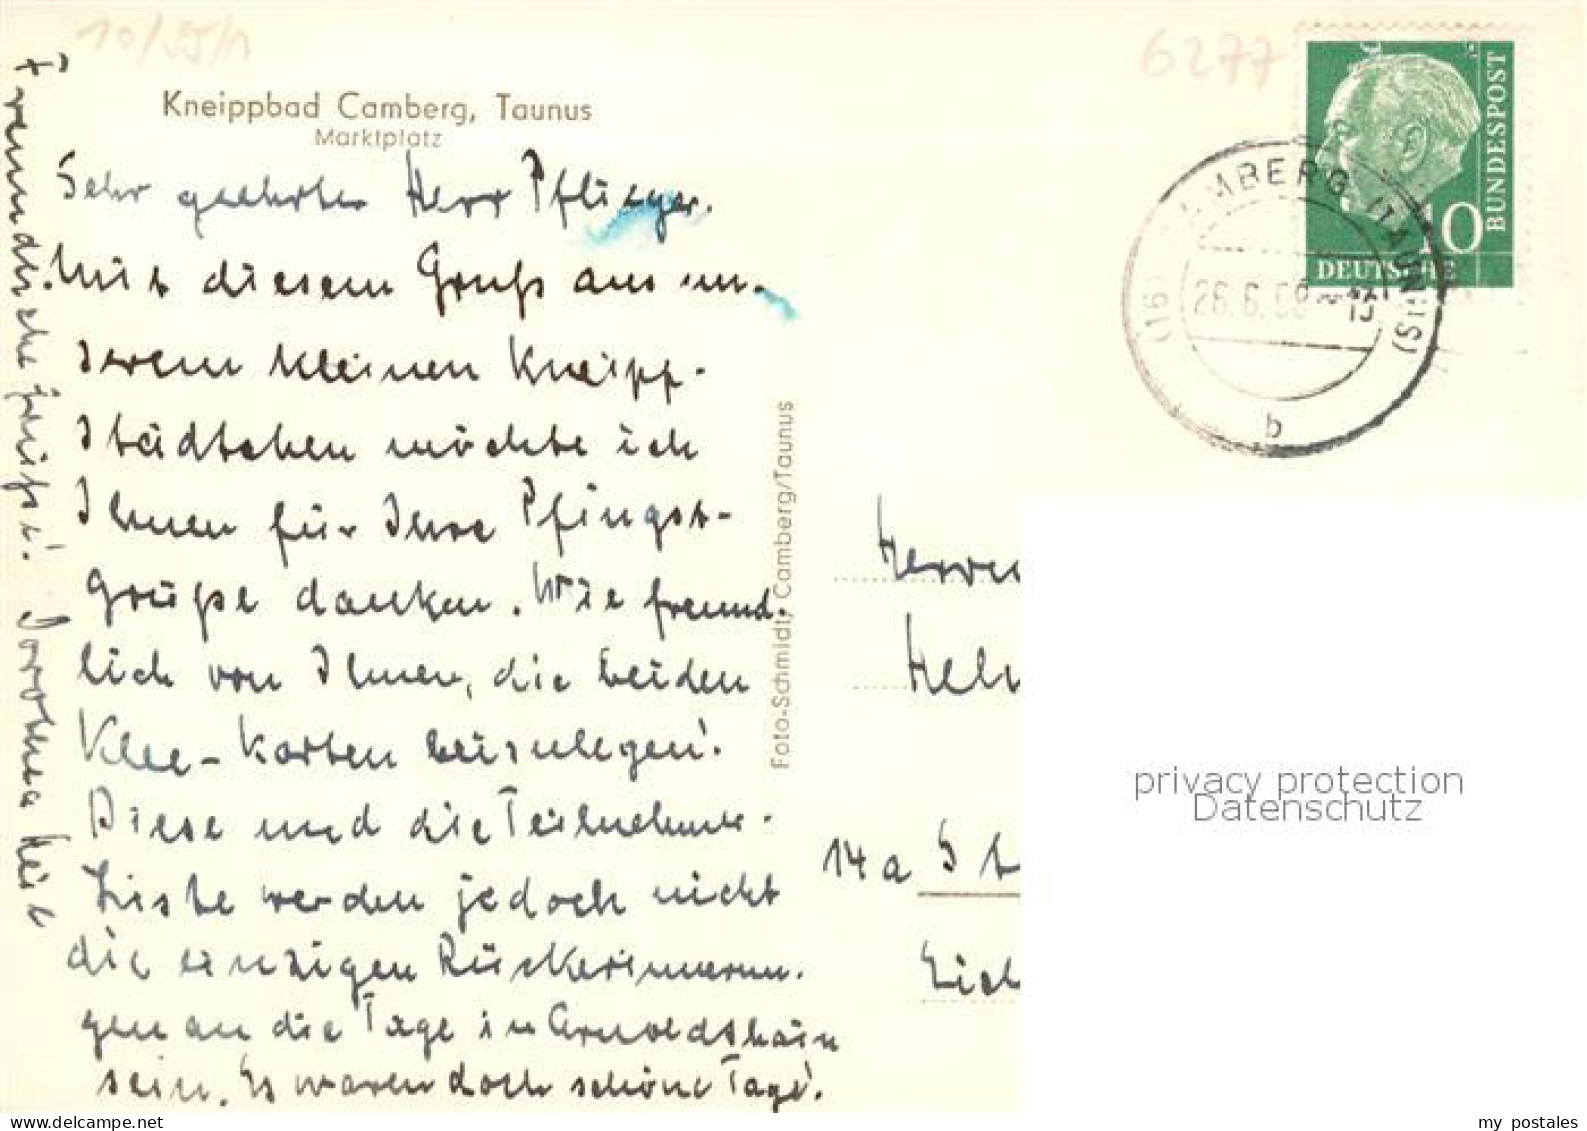 10/55/1
6277
Kneippbad Camberg, Taunus
Marktplatz
BUNDESPOST
10
DEUTSCHE
(16) CAMBERG (TAUNUS)
26.6.
b
Sehr geehrter Herr Pflieger.
Mit diesem Gruß aus un-
serem kleinen Kneipp-
städtchen möchte ich
Ihnen für Ihre Pfingst-
grüße danken. Wie freund-
lich von Ihnen, die beiden
Klee-Karten beizulegen!
Diese und die Teilnehmer-
Liste werden jedoch nicht
die einzigen Rückerinnerun-
gen an die Tage in Arnoldshain
sein. Es waren doch schöne Tage!
Freundliche Grüße! Dorothea
Foto-Schmidt, Camberg/Taunus
Herrn
Hel
14a St
Eich
privacy protection
Datenschutz
my postales